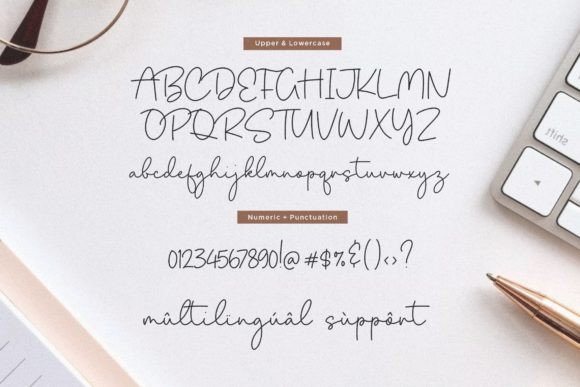 Upper & Lowercase
ABCDEFGHIJKLMN
OPQRSTUVWXYZ
abcdefghijklmnopqrstuvwxyz
Numeric + Punctuation
01234567890!@#$%&()‹›?
mûltilïngúâl sùppôrt
shift